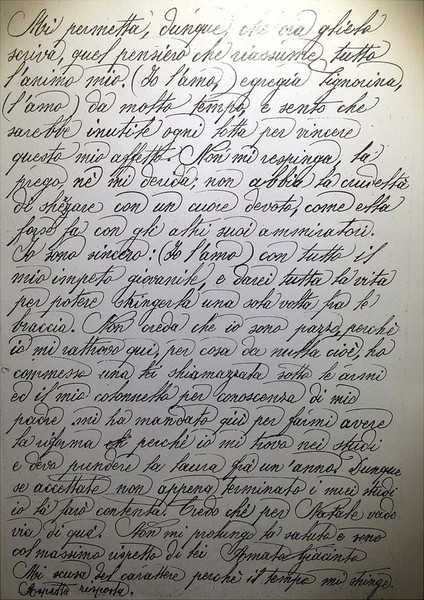 Mi permetta, dunque, che ora gliela
scriva, quel pensiero che riassume tutto
l'animo mio. (Io l'amo,) egregia Signorina,
(l'amo) da molto tempo, e sento che
sarebbe inutile ogni lotta per vincere
questo mio affetto. Non mi respinga, la
prego, nè mi derida, non abbia la crudeltà
di scherzare con un cuore devoto, come ella
forse fa con gli altri suoi ammiratori.
Io sono sincero: (Io l'amo) con tutto il
mio impeto giovanile, e darei tutta la vita
per potere stringerla una sola volta tra le
braccia. Non creda che io sono pazzo, perchè
io mi rattrovo qui, per cosa da nulla cioè, ho
commesso una schiamazzata sotto le armi
ed il mio colonnello per conoscenza di mio
padre mi ha mandato quì per farmi avere
la riforma perchè io mi trova nei studi
e deva prendere la laura già un'anno. Dunque
se accettate non appena terminato i miei studi
io la farò contenta. Credo chè per Natale vado
via di quà. Non mi prolungo la saluto e sono
col massimo rispetto di lei Amata Giacinto
Mi scusa del carattere perchè il tempo mi stringe.
Aspetta risposta.